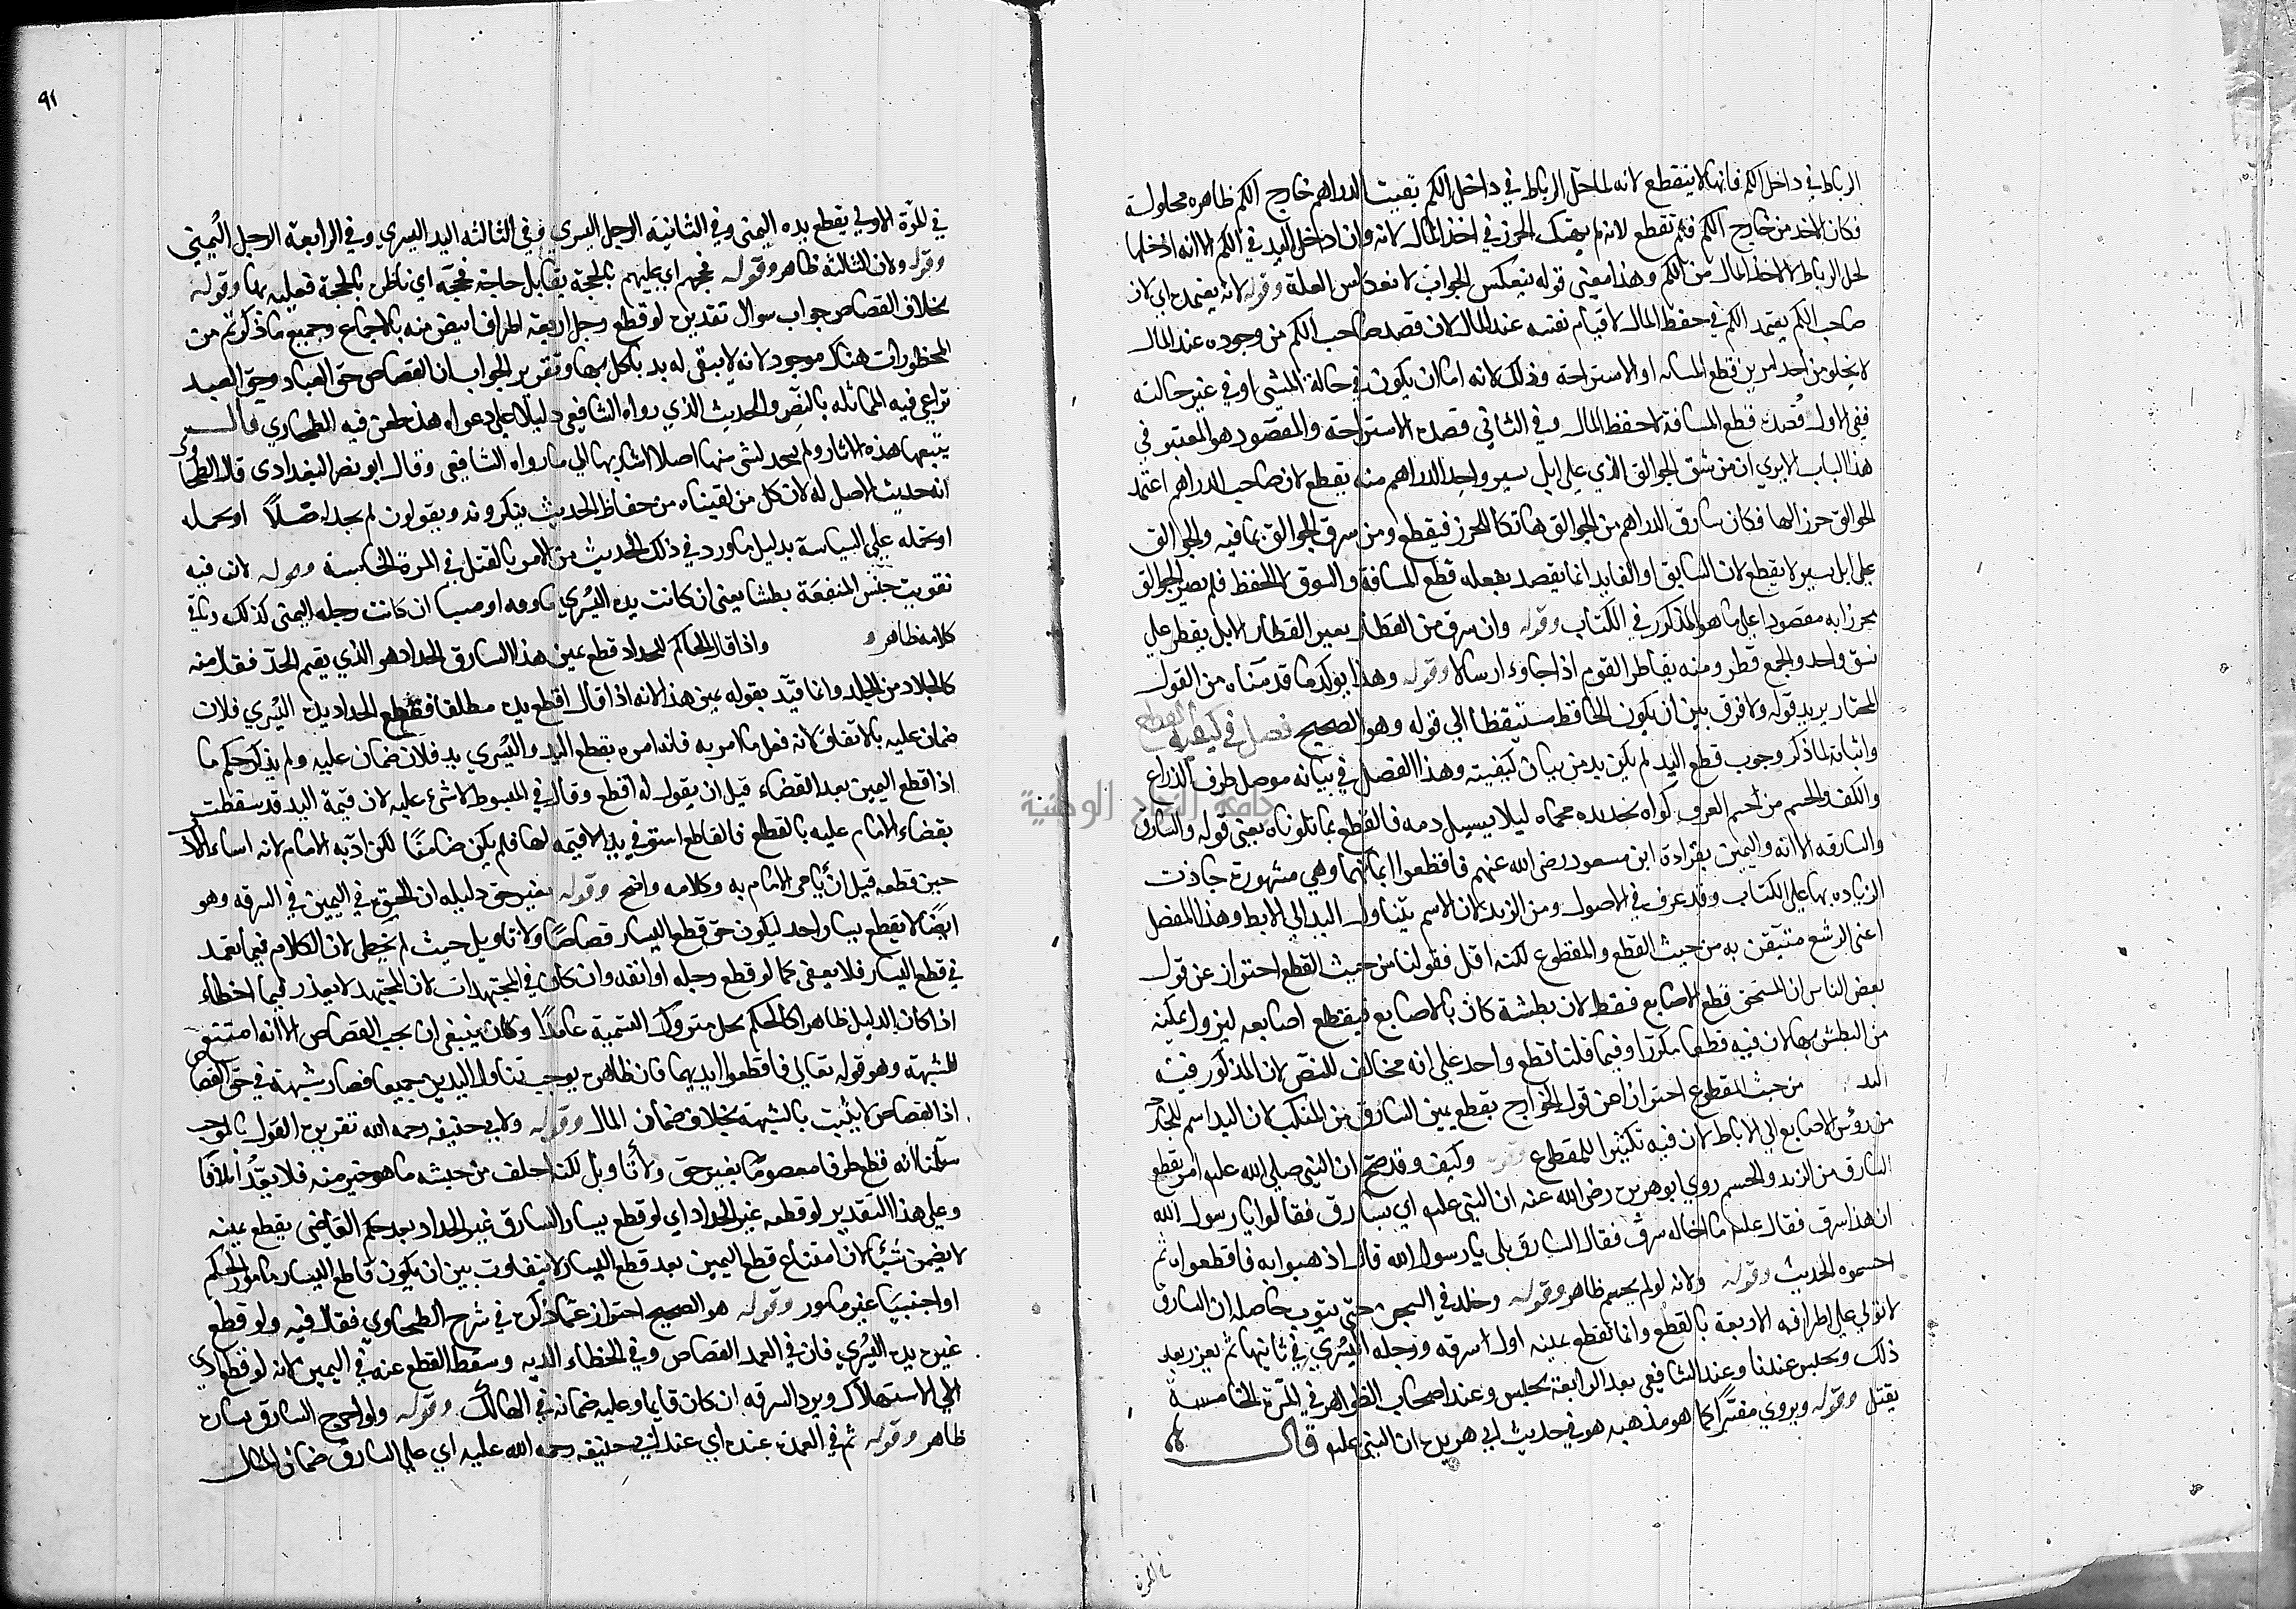 الرباط في داخل الكم فانها لا ينقطع لانه لما حل الرباط في داخل الكم بقيت الدراهم خارج الكم ظاهره محلولة
فكان الاخذ من خارج الكم فلم تقطع لانه لم يهتك الحرز في اخذ المال لانه وان ادخل اليد في الكم الا انه ادخلها
لحل الرباط لا لاخذ المال من الكم وهذا معنى قوله ينعكس الجواب لانعكاس العلة وقوله لانه يعتمده اي لان
صاحب الكم يعتمد الكم في حفظ المال لا قيام نفسه عند المال لان قصد صاحب الكم من وجوده عند المال
لا يخلو من احد امرين قطع المسافه او الاستراحة وذلك لانه اما ان يكون في حالة المشي او في غير حالته
ففي الاول قصده قطع المسافة لا حفظ المال وفي الثاني قصده الاستراحة والمقصود هو المعتبر في
هذا الباب الا يري ان من شق الجوالق الذي على ابل يسير واخذ الدراهم منه يقطع لان صاحب الدراهم اعتمد
الجوالق حرزا لها فكان سارق الدراهم من الجوالق هاتكا للحرز فيقطع ومن سرق الجوالق بما فيه والجوالق
على ابل يسير لا يقطع لان السايق او القايد انما يقصد بفعله قطع المسافة والسوق لا الحفظ فلم يصر الجوالق
محرزا به مقصودا على ما هو المذكور في الكتاب وقوله وان سرق من القطار بعير القطار الابل يقطر على
نسق واحد والجمع قطر ومنه يقاطر القوم اذا جاوء ارسالا وقوله وهذا يوكد ما قدمناه من القول
المختار يريد قوله ولا فرق بين ان يكون الحافظ مستيقظا الي قوله وهو الصحيح فصل في كيفية القطع
واثباته لما ذكر وجوب قطع اليد لم يكن بد من بيان كيفيته وهذا الفصل في بيانه موصل طرف الذراع
والكف والحسم من حسم العروق كواه بحديده محماه ليلا يسيل دمه فالقطع بما تلوناه يعني قوله والسارق
والسارقه الا انه واليمين بقراءة ابن مسعود رضي الله عنهم فاقطعوا ايمانهما وهي مشهورة جازت
الزياده بها على الكتاب وقد عرف في الاصول ومن الزند لان الاسم يتناول اليد الي الابط وهذا المفصل
اعني الرسغ متيقن به من حيث القطع والمقطوع لكنه اقل فقولنا من حيث القطع احتراز عن قول
بعض الناس ان المستحق قطع الاصابع فقط لان بطشه كان بالاصابع فيقطع اصابعه ليزول تمكنه
من البطش بها لان فيه قطعا مكررا وفيما قلنا قطع واحد على انه مخالف للنص لان المذكور فيه
اليد من حيث المقطوع احترازا عن قول الخوارج بقطع يمين السارق من المنكب لان اليد اسم للجارحة
من رؤس الاصابع الي الاباط لان فيه تكثيرا للمقطوع وقوله وكيف وقد صح ان النبي صلى الله عليه امر بقطع
السارق من الزند والحسم روي ابو هريره رضي الله عنه ان النبي عليه اي بسارق فقالوا يا رسول الله
ان هذا سرق فقال عليه ما اخاله سرق فقال السارق بلى يا رسول الله قال اذهبوا به فاقطعوه ثم
احسموه الحديث وقوله ولانه لو لم يحسم ظاهر وقوله وخلد في السجن حتى يتوب حاصله ان السارق
لا نولي على اطرافه الاربعة بالقطع وانما تقطع يمينه اول سرقه ورجله اليسري في ثانيها ثم يعزر بعد
ذلك ويحبس عندنا وعند الشافعي بعد الرابعة يحبس وعند اصحاب الظواهر في المرة الخامسة
يقتل وقوله ويروي مفسرا كما هو مذهبه هو في حديث ابي هريرة ان النبي عليه قال
في المرة
جامعة النجاح الوطنية
٩١
في المرة الاولي يقطع يده اليمنى وفي الثانية الرجل اليسري وفي الثالثه اليد اليسري وفي الرابعة الرجل اليمنى
وقوله ولان الثالثه ظاهر وقوله فحجهم اي غلبهم بالحجة يقابل حاجه فحجه اي ناظره بالحجة فغلبه بها وقوله
بخلاف القصاص جواب سوال تقديره لو قطع رجل اربعة اطراف ايقتص منه بالاجماع وجميع ما ذكرتم من
المحظورات هناك موجود لانه لا يبقى له يد ياكل بها وتقرير الجواب ان القصاص حق العباد وحق العبد
تراعي فيه المماثله بالنص والحديث الذي رواه الشافعي دليلا على دعواه هذا طعن فيه الطحاوي قال
تتبعنا هذه الاثار ولم نجد لشي منها اصلا اشار بها الي ما رواه الشافعي وقال ابو نصر البغدادي قال الطحاوي
انه حديث لا اصل له لان كل من لقيناه من حفاظ الحديث ينكرونه ويقولون لم نجد اصلا او يحمله
او نحمله على السياسة بدليل ما ورد في ذلك الحديث من الامر بالقتل في المرة الخامسة وقوله لان فيه
تفويت جنس المنفعة بطشا يعني ان كانت يده اليسري ماووفه او مشيا ان كانت رجله اليمنى كذلك وباقي
كلامه ظاهر و واذا قال الحاكم للحداد قطع يمين هذا السارق الحداد هو الذي يقيم الحد فعال منه
كالجلاد من الجلد وانما قيد بقوله يمين هذا لانه اذا قال اقطع يده مطلقا فقطع الحداد يده اليسري فلان
ضمان عليه بالاتفاق لانه فعل ما امر به فانه امره بقطع اليد واليسري يد فلان ضمان عليه ولم يذكر حكم ما
اذا قطع اليمين بعد القضاء قبل ان يقول له اقطع وقال في المبسوط لا شيء عليه لان قيمة اليد قد سقطت
بقضاء الامام عليه بالقطع فالقاطع استوفي يدا لا قيمه لها فلم يكن ضامنا لكن ادبه الامام لانه اساء الادب
حين قطعه قبل ان يامر الامام به وكلامه واضح وقوله بغير حق دليله ان الحق في اليمين في السرقه وهو
ايضا لا يقطع بيسار احد ليكون حق قطع اليسار قصاصا ولا تاويل حيث لم يخطى لان الكلام فيما تعمد
في قطع اليسار فلا يعفى كما لو قطع رجله او انفه وان كان في المجتهدات لان المجتهد لا يعذر فيما اخطاء
اذا كان الدليل ظاهرا كالحكم بحل متروك التسمية عامدا وكان ينبغي ان يجب القصاص الا انه امتنع
للشبهة وهو قوله تعالى فاقطعوا ايديهما فان ظاهره يوجب تناول اليدين جميعا فصار شبهة في حق القصاص
اذ القصاص لا يثبت بالشبهة بخلاف ضمان المال وقوله ولابي حنيفه رحمه الله تقريره القول بالموجب
سلمنا انه قطع طرفا معصوما بغير حق ولا تاويل لكنه اخلف من جنسه ما هو خير منه فلا يعد اتلافا
وعلى هذا التقدير لو قطعه غير الحداد اي لو قطع يسار السارق غير الحداد بعد حكم القاضي يقطع يمينه
لا يضمن شيئا لان امتناع قطع اليمين بعد قطع اليسار لا يتفاوت بين ان يكون قاطع اليسار مامور الحكم
او اجنبيا غير مامور وقوله هو الصحيح احتراز عما ذكره في شرح الطحاوي فقال فيه ولو قطع
غيره يده اليسري فان في العمد القصاص وفي الخطاء الديه وسقط القطع عنه في اليمين لانه لو قطع ادي
الي الاستهلاك ويرد السرقه ان كان قايما وعليه ضمانه في الهالك وقوله ولو اخرج السارق يساره
ظاهر وقوله ثم في العمد عنده اي عند ابي حنيفه رحمه الله عليه اي على السارق ضمان المال